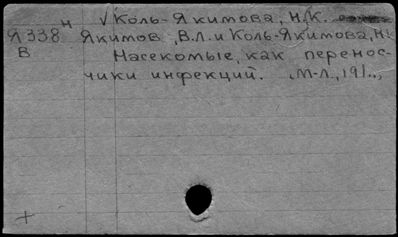 н √ Коль-Якимова, Н.К.
Я338 Якимов, В.Л. и Коль-Якимова, Н.К
В Насекомые, как перенос-
чики инфекций. М-Л., 191..,
+